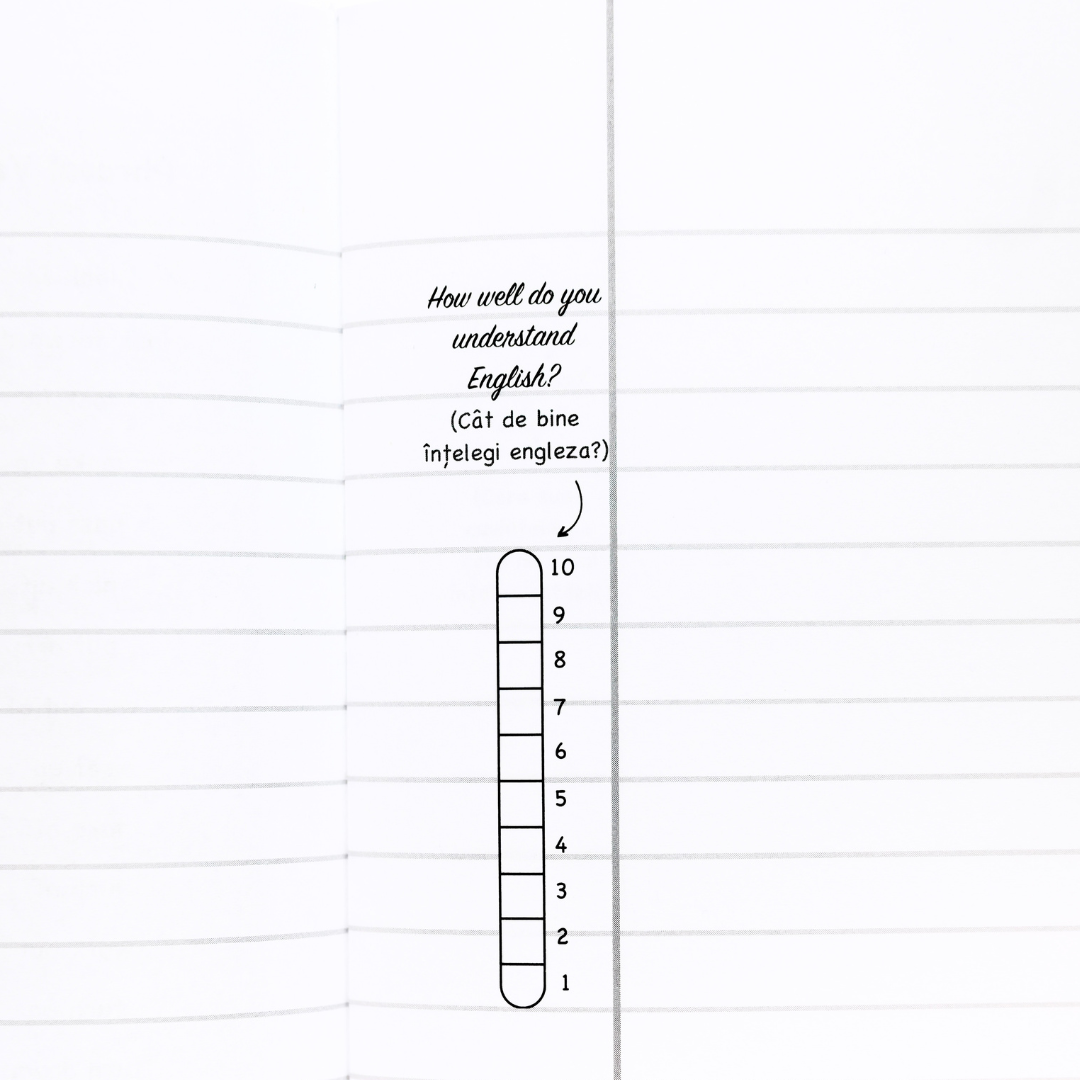 How well do you
understand
English?
(Cât de bine
înțelegi engleza?)
10
9
8
7
6
5
4
3
2
1